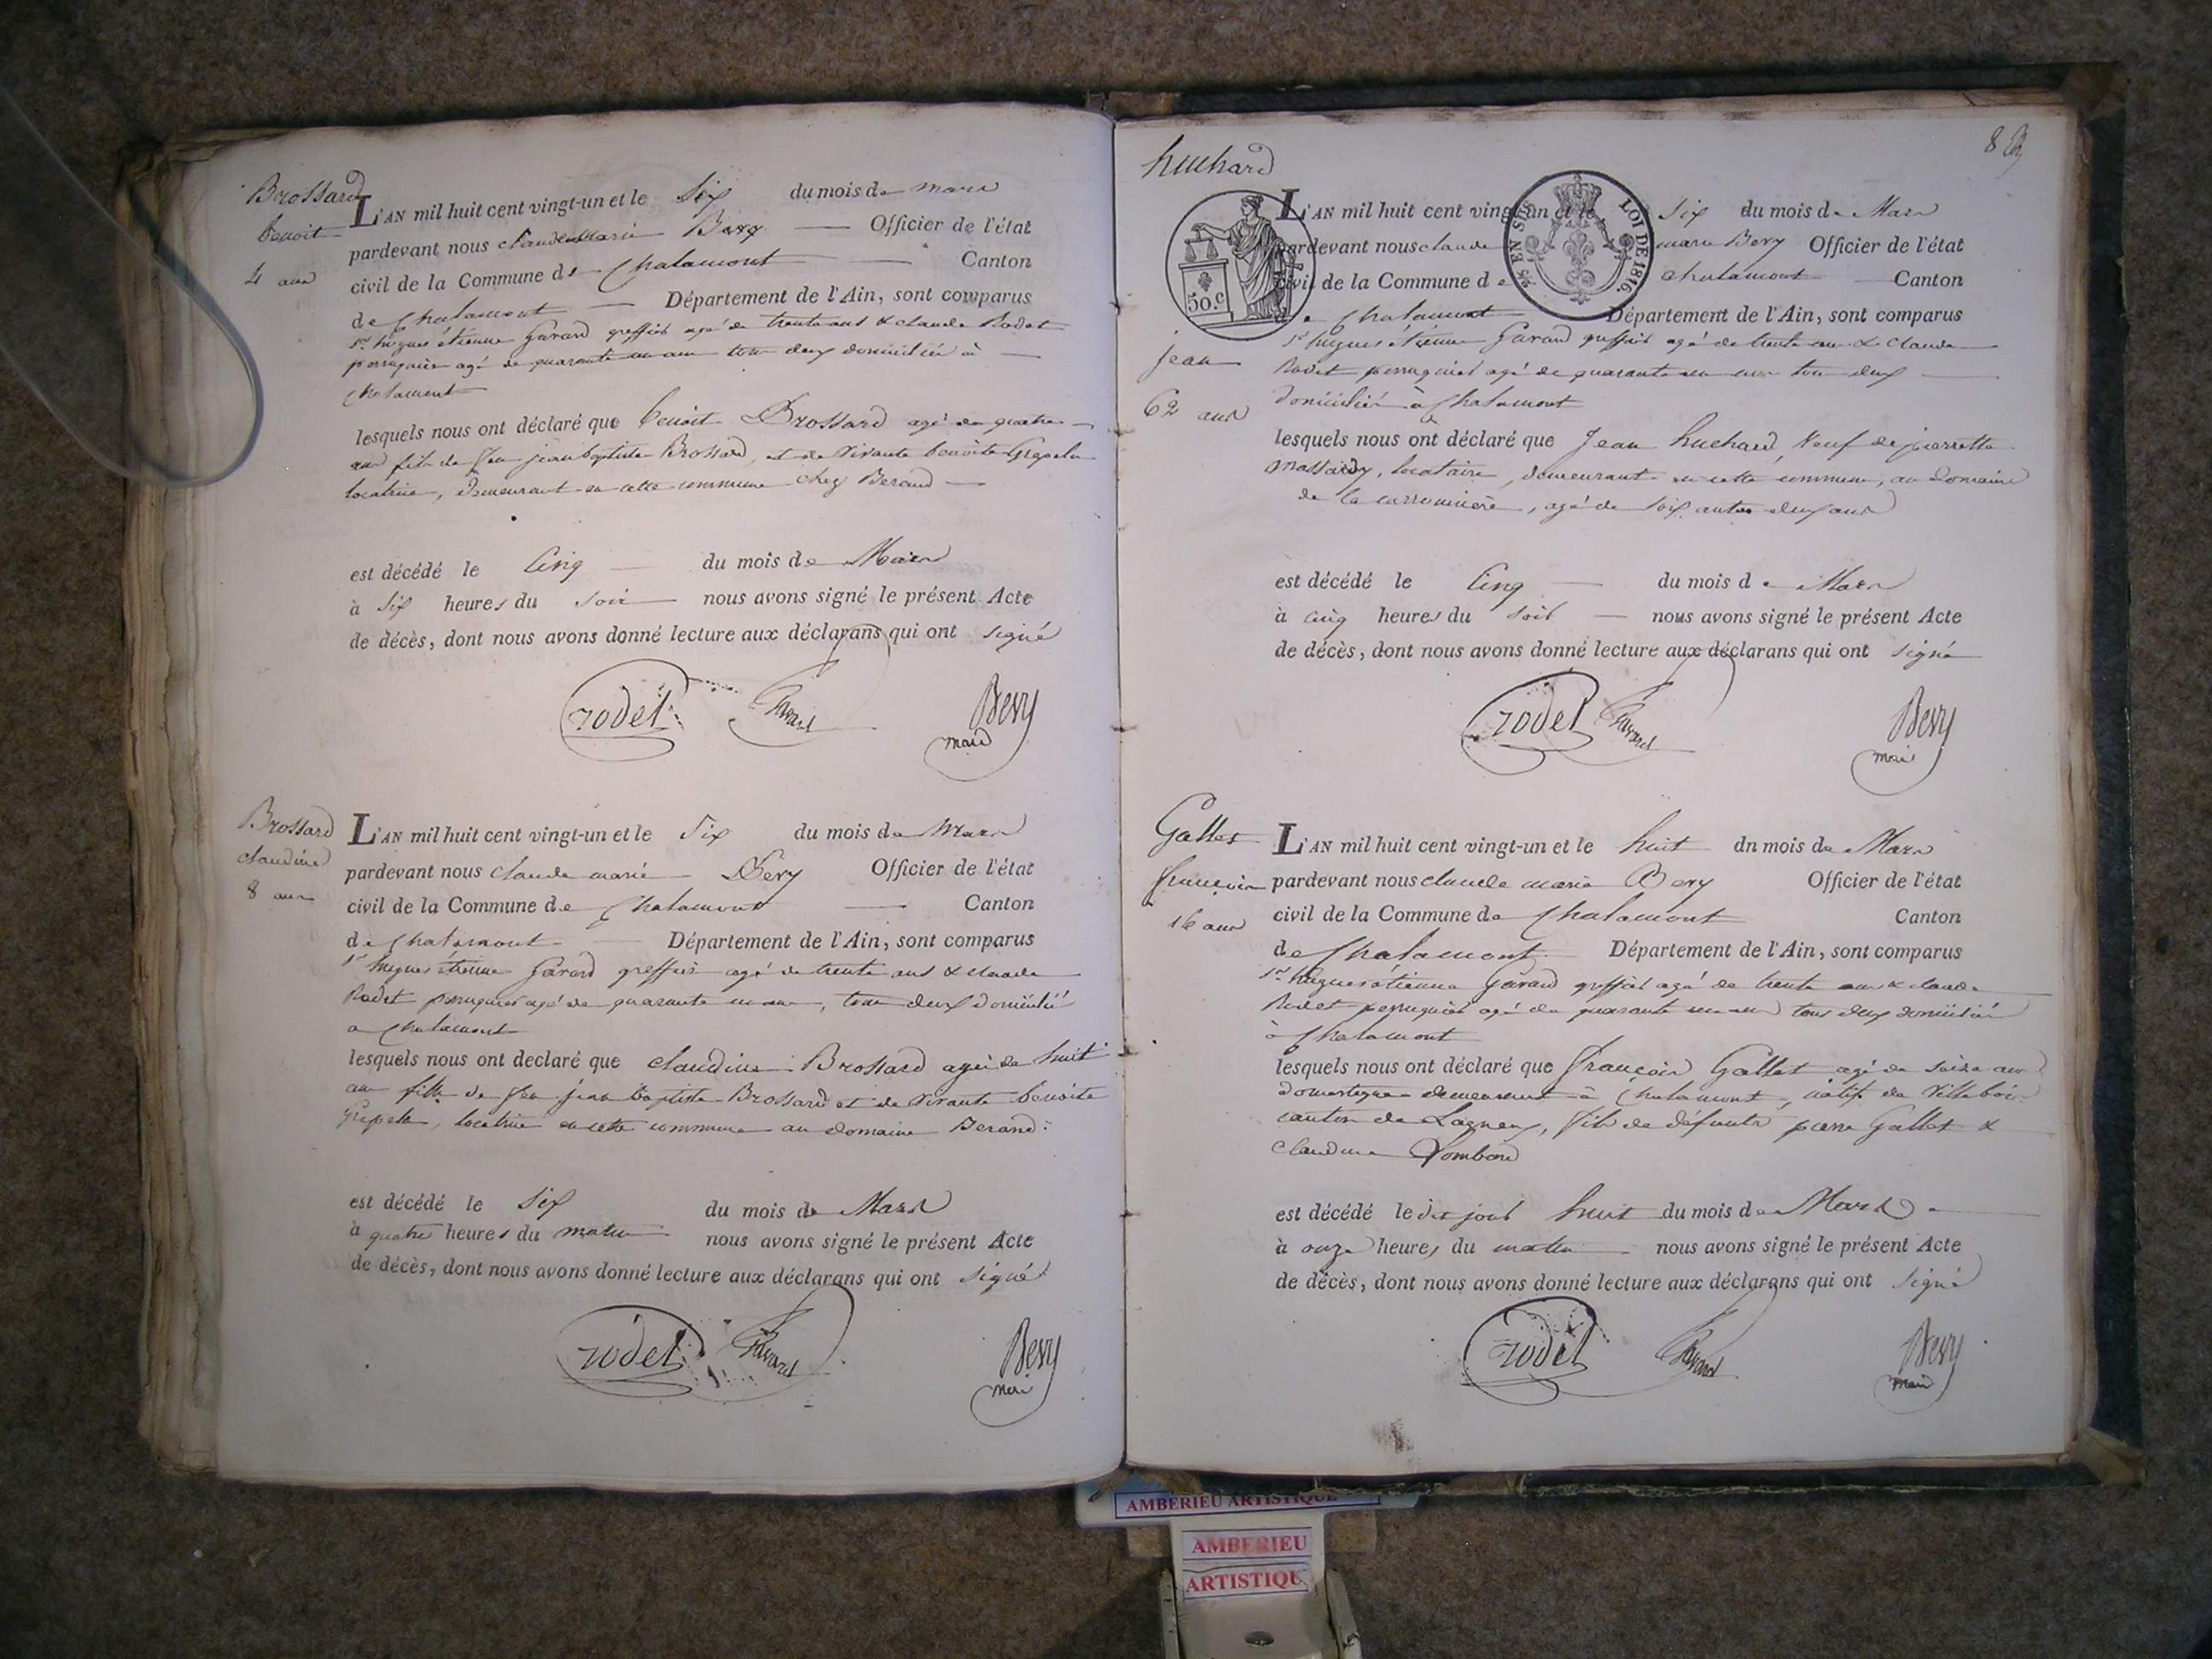 Brossard
benoit
4 ans
L'AN mil huit cent vingt-un et le Six du mois de mars
pardevant nous claude marie Bevy Officier de l'état
civil de la Commune de Chalamont Canton
de Chalamont Département de l'Ain, sont comparus
Sr. hugues étienne Gavard greffier agé de trente ans & claude Rodet
perruquier agé de quarante un ans tous deux domiciliés à
Chalamont
lesquels nous ont déclaré que benoit Brossard agé de quatre
ans fils de feu jean baptiste Brossard, et de vivante benoite Grepela
locatrice, demeurant en cette commune chez Beraud
est décédé le Cinq du mois de Mars
à Six heures du soir nous avons signé le présent Acte
de décès, dont nous avons donné lecture aux déclarans qui ont signé
rodet Gavard Bevy
maire
Brossard
claudine
8 ans
L'AN mil huit cent vingt-un et le Six du mois de Mars
pardevant nous claude marie Bevy Officier de l'état
civil de la Commune de Chalamont Canton
de Chalamont Département de l'Ain, sont comparus
Sr. hugues étienne Gavard greffier agé de trente ans & claude
Rodet perruquier agé de quarante un ans, tous deux domicilié
a Chalamont
lesquels nous ont declaré que claudine Brossard agée de huit
ans fille de feu jean baptiste Brossard et de vivante benoite
, locatrice en cette commune au domaine Beraud
est décédé le Six du mois de Mars
à quatre heures du matin nous avons signé le présent Acte
de décès, dont nous avons donné lecture aux déclarans qui ont signé
rodet Gavard Bevy
maire
8
huchard
jean
62 ans
50.c
2/5 EN SUS LOI DE 1816.
L'AN mil huit cent vingt-un et le Six du mois de Mars
pardevant nous claude marie Bevy Officier de l'état
civil de la Commune de Chalamont Canton
de Chalamont Département de l'Ain, sont comparus
Sr. hugues étienne Gavard greffier agé de trente ans & Claude
Rodet perruquier agé de quarante un ans tous deux
domiciliés à Chalamont
lesquels nous ont déclaré que Jean huchard, Veuf de pierrette
, locataire, demeurant en cette commune, au domaine
de la carronniere, agé de soixante deux ans
est décédé le Cinq du mois de Mars
à cinq heures du soir nous avons signé le présent Acte
de décès, dont nous avons donné lecture aux déclarans qui ont signé
rodet Gavard Bevy
maire
Gallet
françois
16 ans
L'AN mil huit cent vingt-un et le huit dn mois de Mars
pardevant nous claude marie Bevy Officier de l'état
civil de la Commune de Chalamont Canton
de Chalamont Département de l'Ain, sont comparus
Sr. hugues étienne Gavard greffier agé de trente ans & claude
Rodet perruquier agé de quarante un ans tous deux domiciliés
à Chalamont
lesquels nous ont déclaré que François Gallet agé de seize ans
domestique demeurant à Chalamont, natif de Villebois
canton de Lagneu, fils de défunts pierre Gallet &
Claudine Lombard
est décédé le dit jour huit du mois de Mars
à onze heures du matin nous avons signé le présent Acte
de décès, dont nous avons donné lecture aux déclarans qui ont signé
rodet Gavard Bevy
maire
AMBERIEU ARTISTIQUE
AMBERIEU
ARTISTIQU